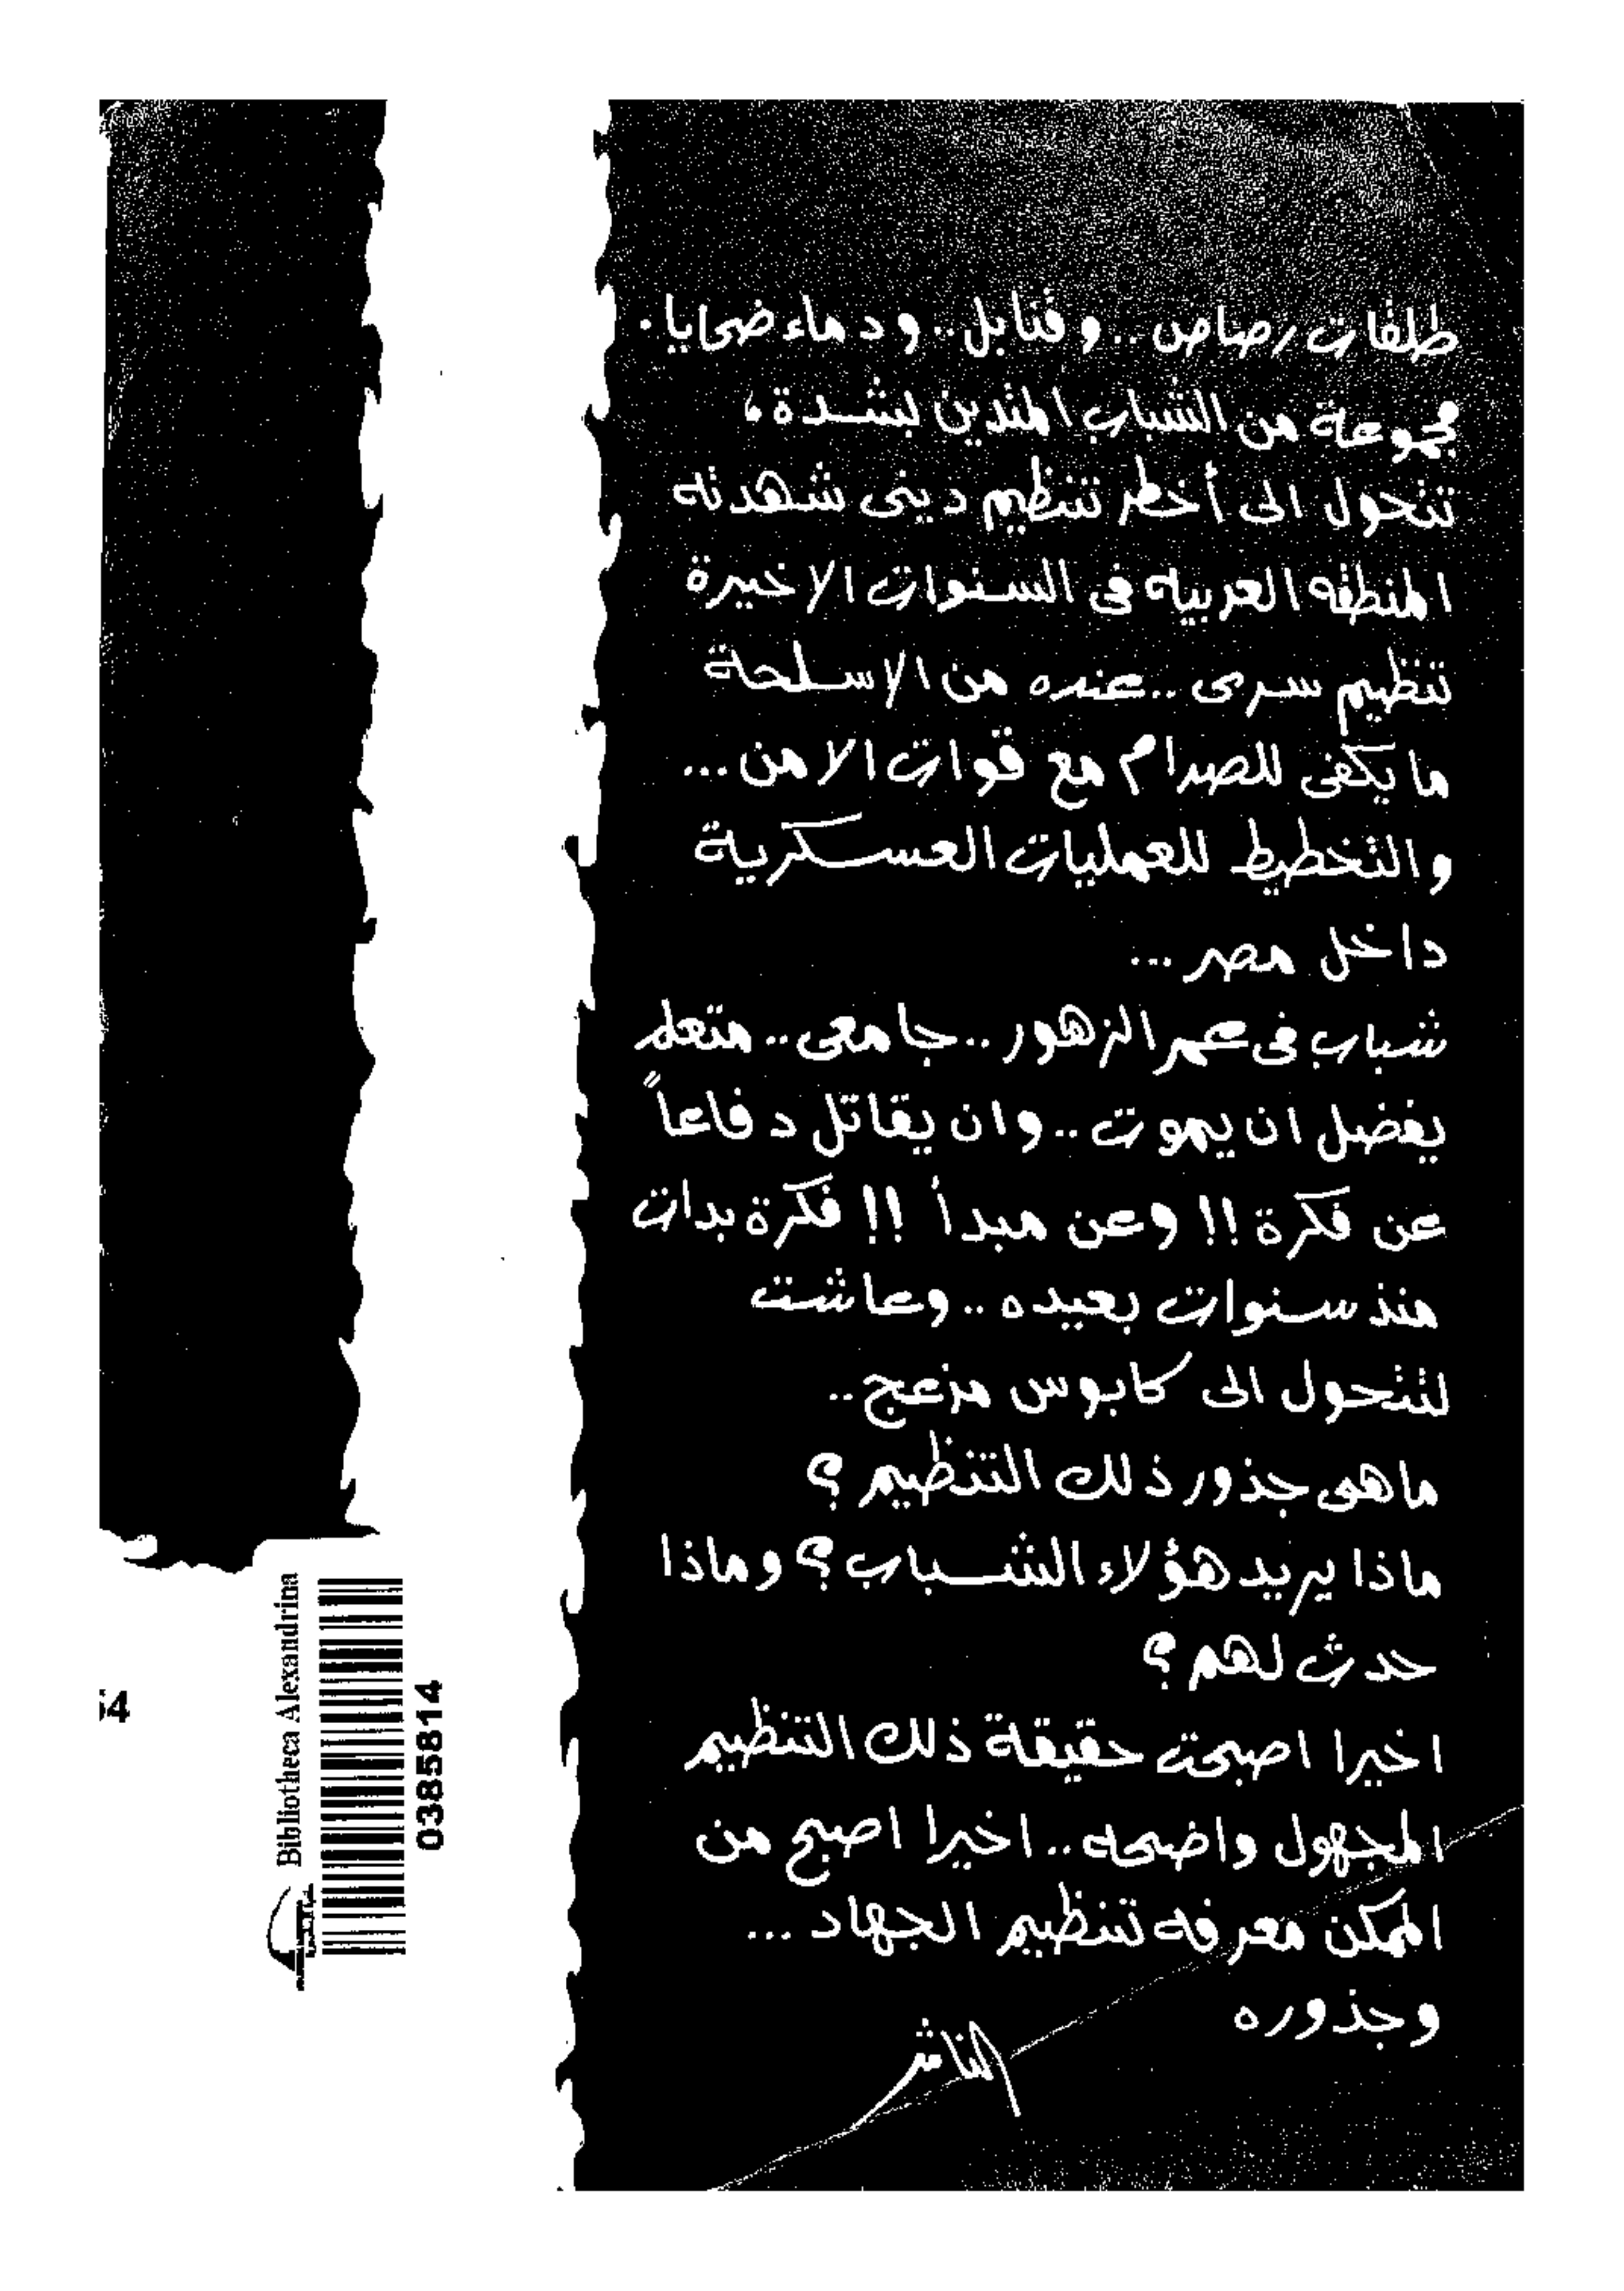 طلقات رصاص .. وقنابل .. ودماء ضحايا .
مجموعة من الشباب المتدين بشدة ،
تتحول الى أخطر تنظيم دينى شهدته
المنطقه العربيه فى السنوات الاخيرة
تنظيم سرى .. عنده من الاسلحة
ما يكفى للصدام مع قوات الامن ...
والتخطيط للعمليات العسكرية
داخل مصر ...
شباب فى عمر الزهور .. جامعى .. متعلم
يفضل ان يموت .. وان يقاتل دفاعاً
عن فكرة !! وعن مبدأ !! فكرة بدات
منذ سنوات بعيده .. وعاشت
لتتحول الى كابوس مزعج ..
ماهى جذور ذلك التنظيم ؟
ماذا يريد هؤلاء الشباب ؟ وماذا
حدث لهم ؟
اخيرا اصبحت حقيقة ذلك التنظيم
المجهول واضحه .. اخيرا اصبح من
الممكن معرفه تنظيم الجهاد ...
وجذوره
الناشر
Bibliotheca Alexandrina
0385814